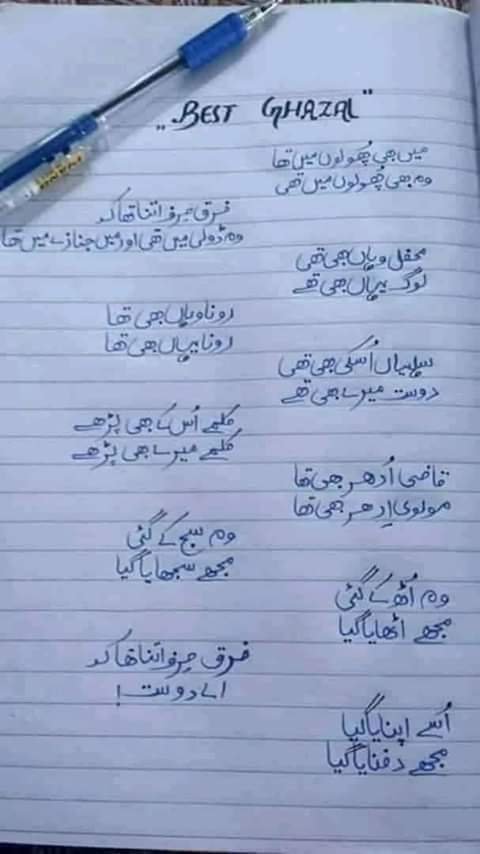 "BEST GHAZAL"
میں بھی پُھولوں میں تھا
وہ بھی پُھولوں میں تھی
فرق صرف اتنا تھا کہ
وہ ڈولی میں تھی اور میں جنازے میں تھا
محفل وہاں بھی تھی
لوگ یہاں بھی تھے
رونا وہاں بھی تھا
رونا یہاں بھی تھا
سہلیاں اُسکی بھی تھی
دوست میرے بھی تھے
کلمے اُس کے بھی پڑھے
کلمے میرے بھی پڑھے
قاضی اُدھر بھی تھا
مولوی اِدھر بھی تھا
وہ سج کے گئی
مجھے سجھایا گیا
وہ اُٹھ کے گئی
مجھے اٹھایا گیا
فرق صرف اتنا تھا کہ
اے دوست !
اُسے اپنایا گیا
مجھے دفنایا گیا